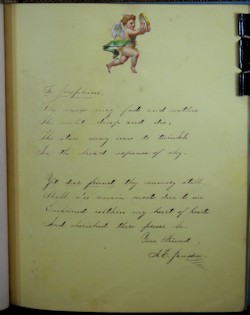 To Josephine.
The rose may fade and wither
The violet droop and die,
The stars may cease to twinkle
In the broad expanse of sky.
Yet dear friend thy memory still
Shall e'er remain most dear to me
Enshrined within my heart of hearts
And cherished there
Your friend,